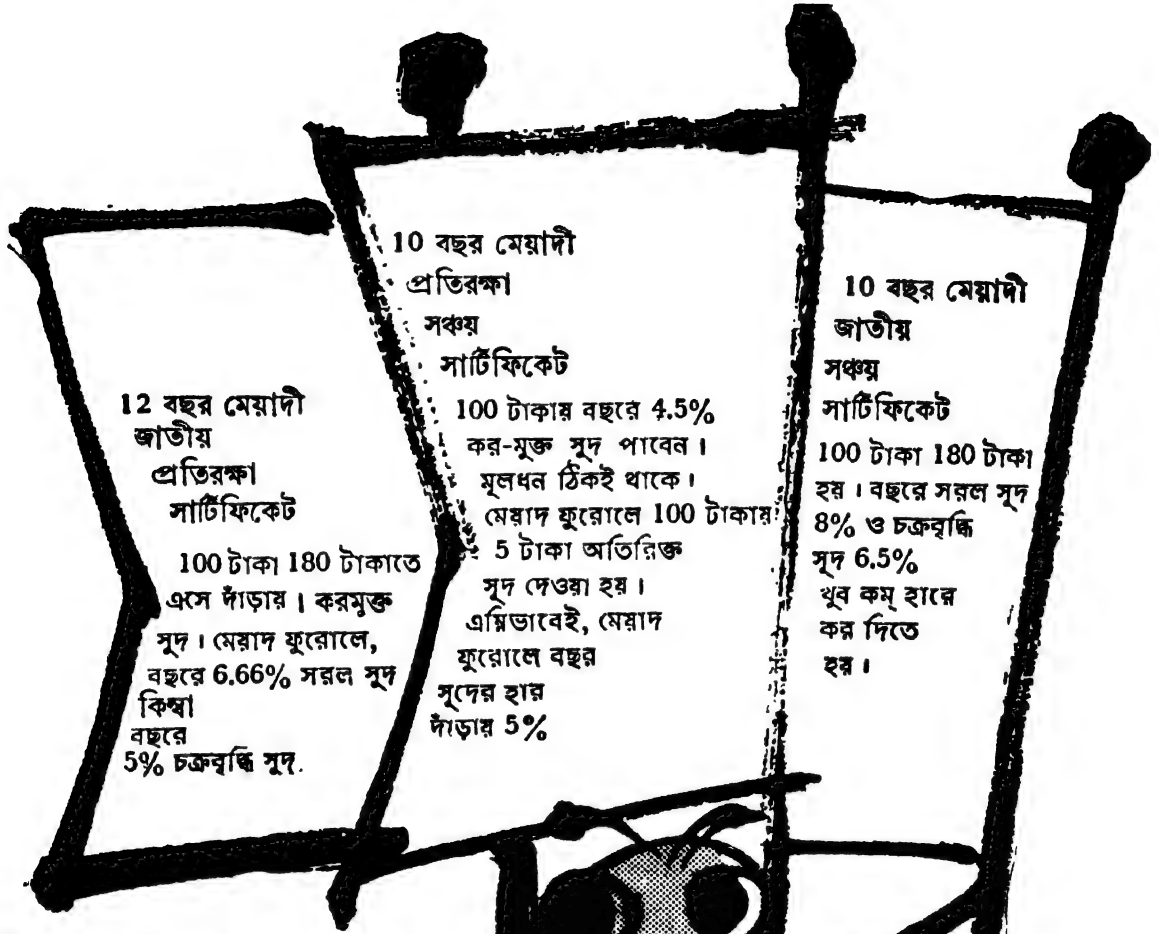 12 বছর মেয়াদী
জাতীয়
প্রতিরক্ষা
সার্টিফিকেট
100 টাকা 180 টাকাতে
এসে দাঁড়ায়। করমুক্ত
সুদ। মেয়াদ ফুরোলে,
বছরে 6.66% সরল সুদ
কিম্বা
বছরে
5% চক্রবৃদ্ধি সুদ.
10 বছর মেয়াদী
প্রতিরক্ষা
সঞ্চয়
সার্টিফিকেট
100 টাকায় বছরে 4.5%
কর-মুক্ত সুদ পাবেন।
মূলধন ঠিকই থাকে।
মেয়াদ ফুরোলে 100 টাকায়
5 টাকা অতিরিক্ত
সুদ দেওয়া হয়।
এম্নিভাবেই, মেয়াদ
ফুরোলে বছর
সুদের হার
দাঁড়ায় 5%
10 বছর মেয়াদী
জাতীয়
সঞ্চয়
সার্টিফিকেট
100 টাকা 180 টাকা
হয়। বছরে সরল সুদ
8% ও চক্রবৃদ্ধি
সুদ 6.5%
খুব কম্ হারে
কর দিতে
হয়।